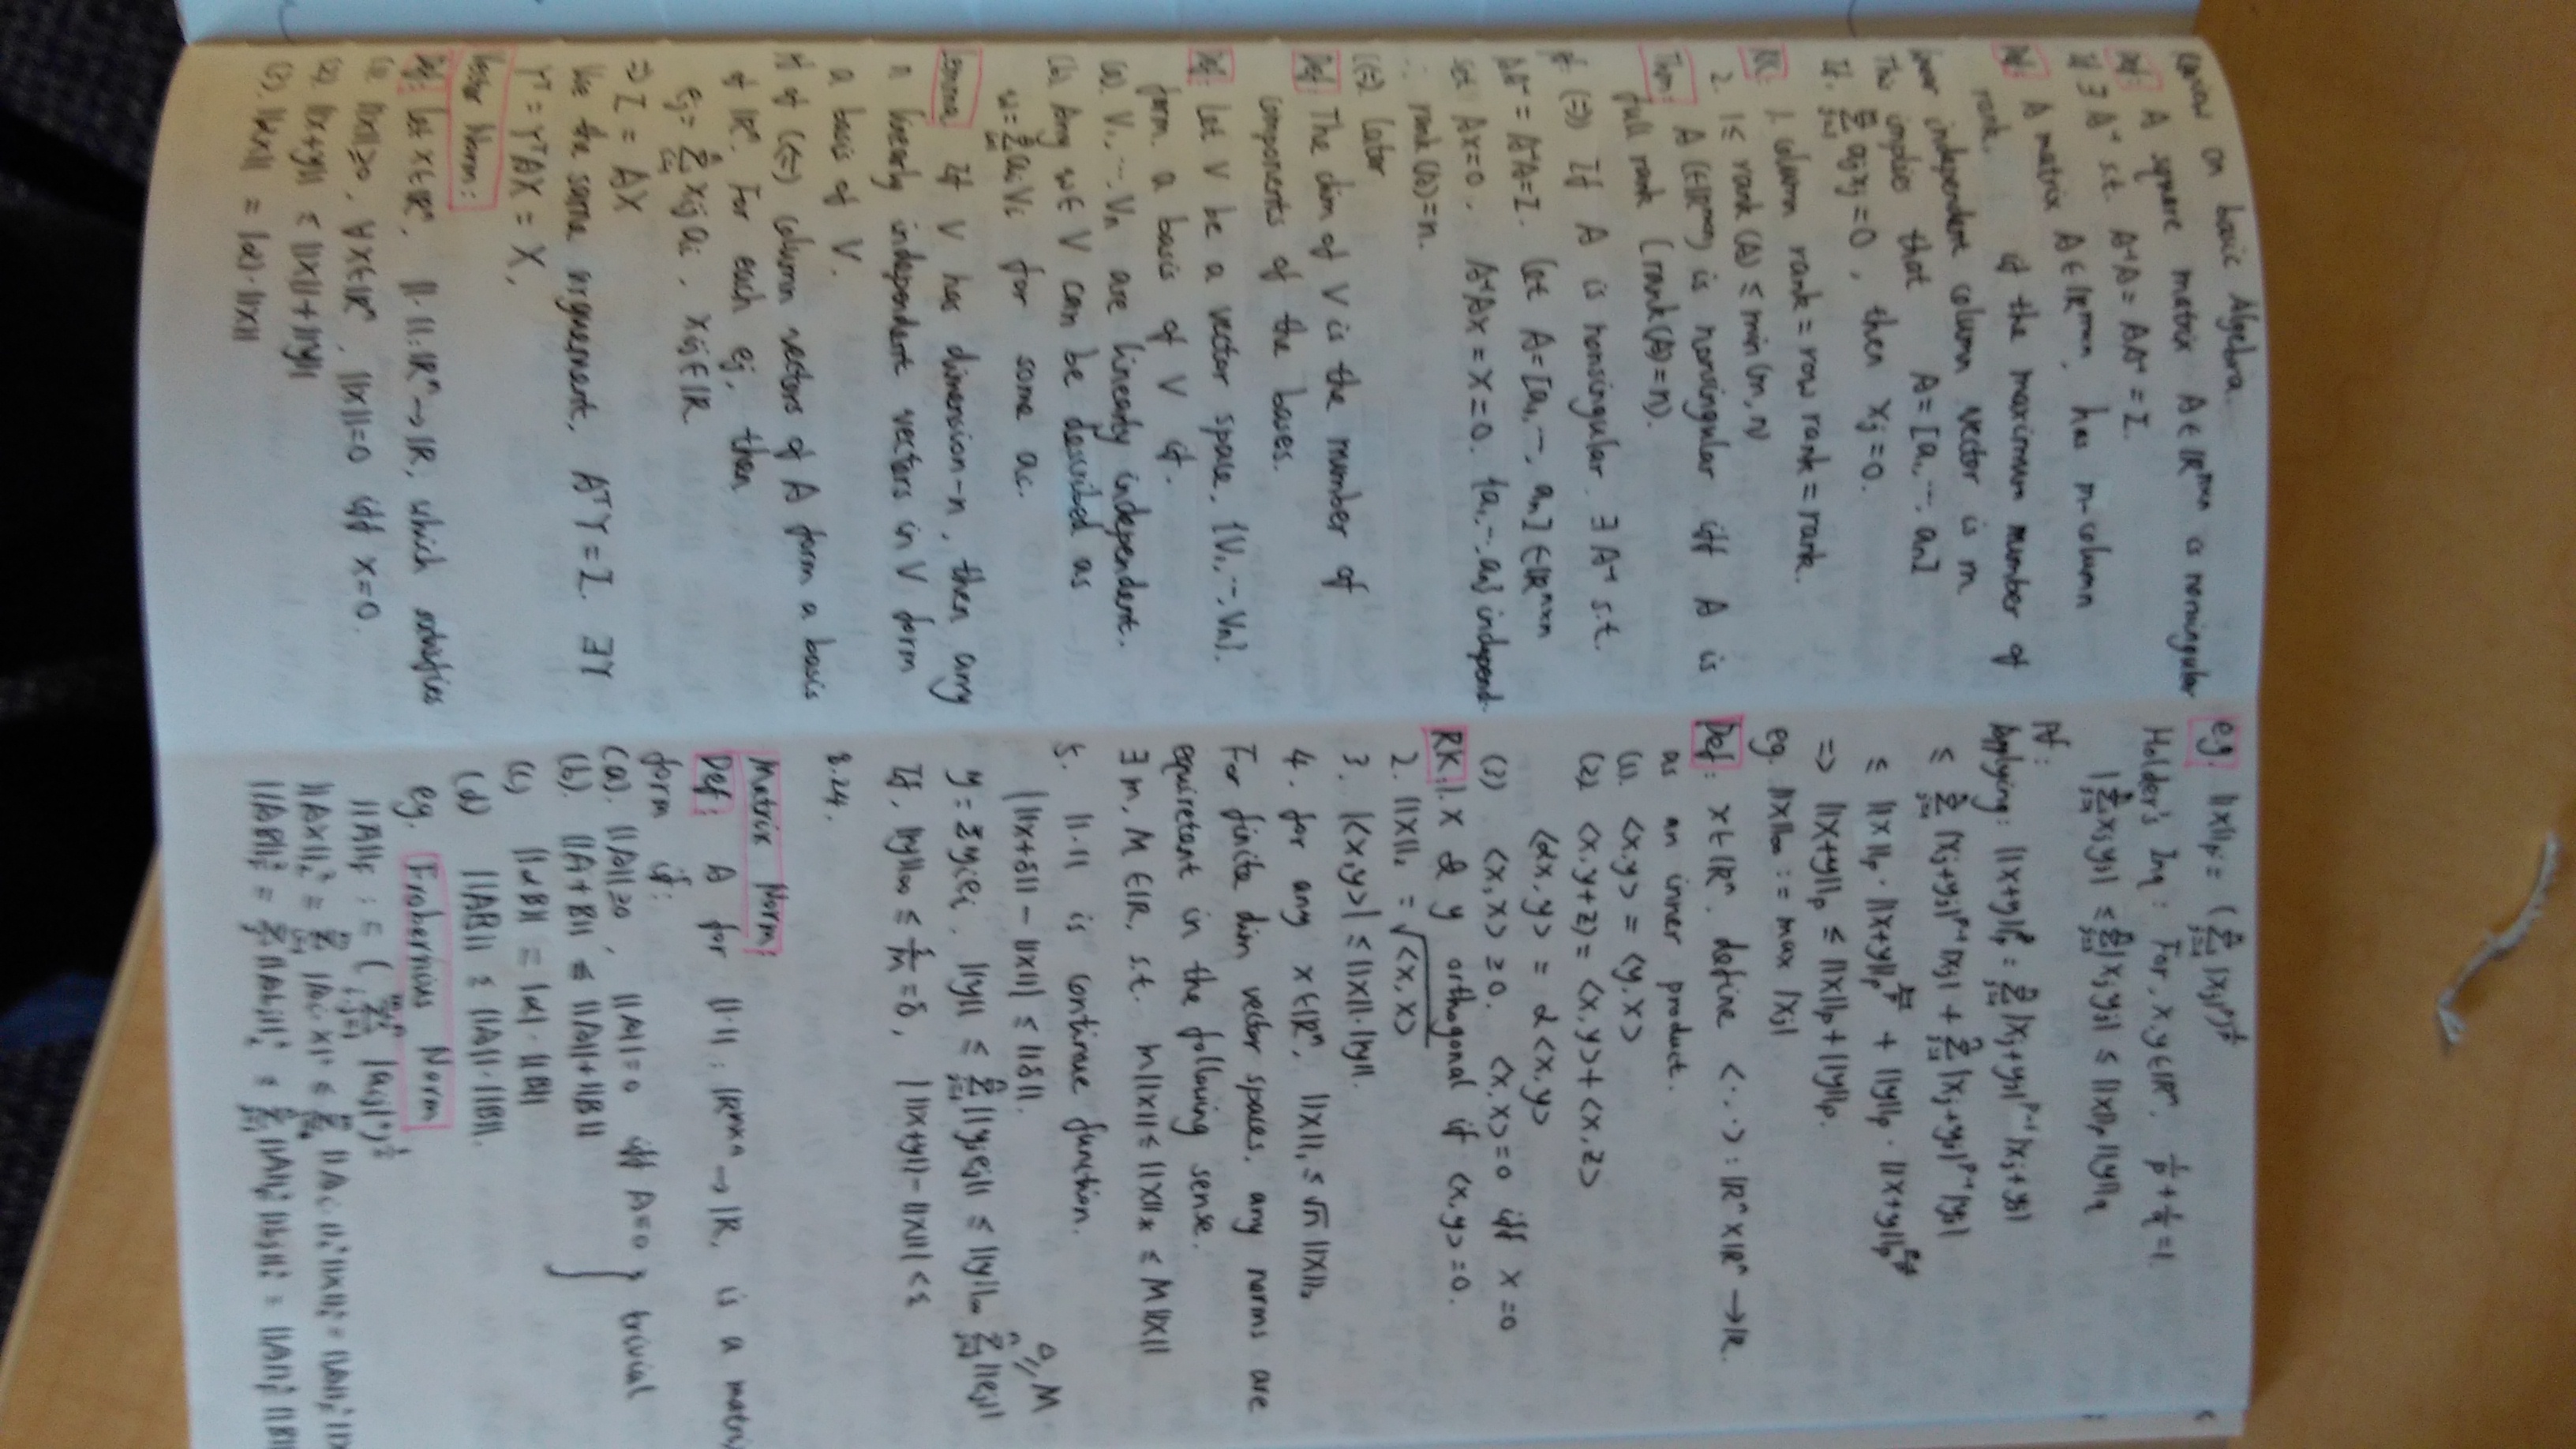 Review on basic Algebra.
Def: A square matrix A ∈ ℝⁿˣⁿ is nonsingular
If ∃ A⁻¹ s.t. A⁻¹A = AA⁻¹ = I.
A matrix A ∈ ℝᵐˣⁿ, has m-column
rank.
Def: if the maximum number of
linear independent column vector is m
This implies that A = [a₁, ⋯, aₙ]
If. Σⱼ₌₁ⁿ aⱼxⱼ = 0, then xⱼ = 0.
RK: 1. column rank = row rank = rank.
2. 1 ≤ rank (A) ≤ min (m, n)
Thm: A (∈ℝⁿˣⁿ) is nonsingular iff A is
full rank (rank(A) = n).
pf: (⇒) If A is nonsingular. ∃ A⁻¹ s.t.
AA⁻¹ = A⁻¹A = I. Let A = [a₁, ⋯, aₙ] ∈ ℝⁿˣⁿ
set Ax = 0. A⁻¹Ax = x = 0. {a₁, ⋯, aₙ} independ-
∴ rank (A) = n.
(⇐) Later
Def: The dim of V is the number of
components of the bases.
Def: Let V be a vector space, {V₁, ⋯, Vₙ}.
form a basis of V if.
(a). V₁, ⋯, Vₙ are linearly independent.
(b). Any w ∈ V can be described as
w = Σᵢ₌₁ⁿ aᵢVᵢ for some aᵢ.
Lemma If V has dimension-n, then any
n linearly independent vectors in V form
a basis of V.
pf of (⇐) column vectors of A form a basis
of ℝⁿ. For each eⱼ, then
eⱼ = Σᵢ₌₁ⁿ xᵢⱼaᵢ, xᵢⱼ ∈ ℝ
⇒ I = AX
Use the same arguement, AᵀY = I. ∃Y
Yᵀ = YᵀAX = X,
Vector Norm:
Def: Let x ∈ ℝⁿ, ||·||: ℝⁿ → ℝ, which satisfies
(1). ||x|| ≥ 0, ∀x ∈ ℝⁿ, ||x|| = 0 iff x = 0.
(2). ||x+y|| ≤ ||x|| + ||y||
(3). ||αx|| = |α|·||x||
eg. ||x||ₚ = (Σⱼ₌₁ⁿ |xⱼ|ᵖ)^(1/p)
Holder's Inq: For, x, y ∈ ℝⁿ, 1/p + 1/q = 1.
|Σⱼ₌₁ⁿ xⱼyⱼ| ≤ Σⱼ₌₁ⁿ |xⱼyⱼ| ≤ ||x||ₚ ||y||q
pf:
Applying: ||x+y||ₚᵖ = Σⱼ₌₁ⁿ |xⱼ+yⱼ|ᵖ⁻¹ |xⱼ+yⱼ|
≤ Σⱼ₌₁ⁿ |xⱼ+yⱼ|ᵖ⁻¹ |xⱼ| + Σⱼ₌₁ⁿ |xⱼ+yⱼ|ᵖ⁻¹ |yⱼ|
≤ ||x||ₚ · ||x+y||ₚ^(p/q) + ||y||ₚ · ||x+y||ₚ^(p/q)
⇒ ||x+y||ₚ ≤ ||x||ₚ + ||y||ₚ.
eg. ||x||∞ := max |xⱼ|
Def: x ∈ ℝⁿ. define <·,·>: ℝⁿ × ℝⁿ → ℝ.
as an inner product.
(1). <x,y> = <y,x>
(2). <x, y+z> = <x,y> + <x,z>
<αx, y> = α<x,y>
(3) <x,x> ≥ 0. <x,x> = 0 iff x = 0
RK: 1. x & y orthogonal if <x,y> = 0.
2. ||x||₂ = √<x,x>
3. |<x,y>| ≤ ||x||·||y||.
4. for any x ∈ ℝⁿ, ||x||₁ ≤ √n ||x||₂
For finite dim vector spaces, any norms are
equiretant in the following sense.
∃ m, M ∈ ℝ, s.t. m||x|| ≤ ||x||* ≤ M||x||
5. ||·|| is continue function.
| ||x+δ|| - ||x|| | ≤ ||δ||.
≜ M
y = Σyᵢeᵢ. ||y|| ≤ Σⱼ₌₁ⁿ ||yⱼeⱼ|| ≤ ||y||∞ Σⱼ₌₁ⁿ ||eⱼ||
If, ||y||∞ ≤ ε/M = δ, | ||x+y|| - ||x|| | < ε
8.24.
Matrix Norm:
Def: A for ||·||: ℝᵐˣⁿ → ℝ, is a matri
form if:
(a). ||A|| ≥ 0, ||A|| = 0 iff A = 0 } trivial
(b). ||A+B|| ≤ ||A|| + ||B||
(c) ||αB|| = |α|·||B||
(d) ||AB|| ≤ ||A||·||B||.
eg. Frobernius Norm
||A||F := (Σᵢ,ⱼ₌₁ᵐ'ⁿ |aᵢⱼ|²)^(1/2)